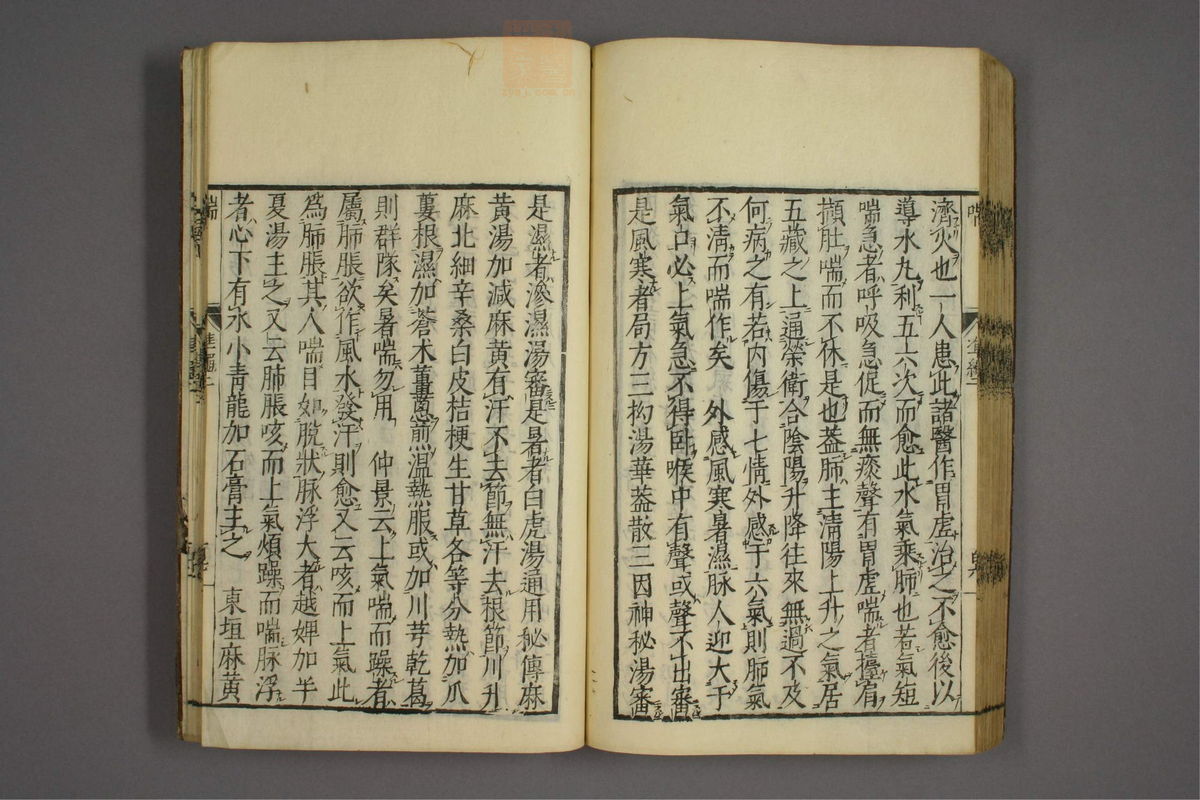 濟火也一人患此諸醫作胃虛治之不愈後以
導水丸利五六次而愈此水氣乘肺也若氣短
喘急者呼吸急促而無痰聲有胃虛喘者擡肩
擷肚喘而不休是也蓋肺主淸陽上升之氣居
五藏之上通榮衛合陰陽升降往來無過不及
何病之有若內傷于七情外感于六氣則肺氣
不淸而喘作矣 外感風寒暑濕脉人迎大于
氣口必上氣急不得臥喉中有聲或聲不出審
是風寒者局方三抝湯華蓋散三因神秘湯審
是濕者滲濕湯審是暑者白虎湯通用秘傳麻
黃湯加減麻黃有汗不去節無汗去根節川升
麻北細辛桑白皮桔梗生甘草各等分熱加瓜
蔞根濕加蒼朮薑葱煎溫熱服或加川芎乾葛
則群隊矣暑喘勿用 仲景云上氣喘而躁者
屬肺脹欲作風水發汗則愈又云咳而上氣此
爲肺脹其人喘目如脫狀脉浮大者越婢加半
夏湯主之又云肺脹咳而上氣煩躁而喘脉浮
者心下有水小靑龍加石膏主之 東垣麻黃
喘